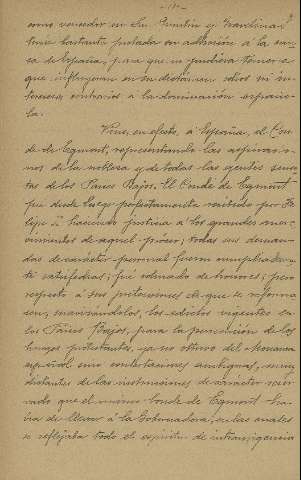 como vencedor en San Quintín y Gravelinas
tenía bastante probada su adhesión á la cau-
sa de España, para que no pudiera temerse
que influyeran en su dictamen odios ni in-
tereses contrarios á la dominación españo-
la.
Vino, en efecto, á España, el Con-
de de Egmont, representando las aspiracio-
nes de la nobleza y de todas las gentes sensa-
tas de los Países Bajos. El Conde de Egmont
fué desde luego perfectamente recibido por Fe-
lipe 2º haciendo justicia á los grandes mere-
cimientos de aquel prócer; todas sus deman-
das de carácter personal fueron cumplidamen-
te satisfechas; fué colmado de honores; pero
respecto á sus peticiones de que se reforma-
sen, suavizándolos, los edictos vigentes en
los Países Bajos, para la punición de los
herejes protestantes, ya no obtuvo del Monarca
español, sino contestaciones ambiguas, muy
distantes de las instrucciones de carácter reser-
vado que el mismo Conde de Egmont ha-
bía de llevar á la Gobernadora, en las cuales
se reflejaba todo el espíritu de intransigencia